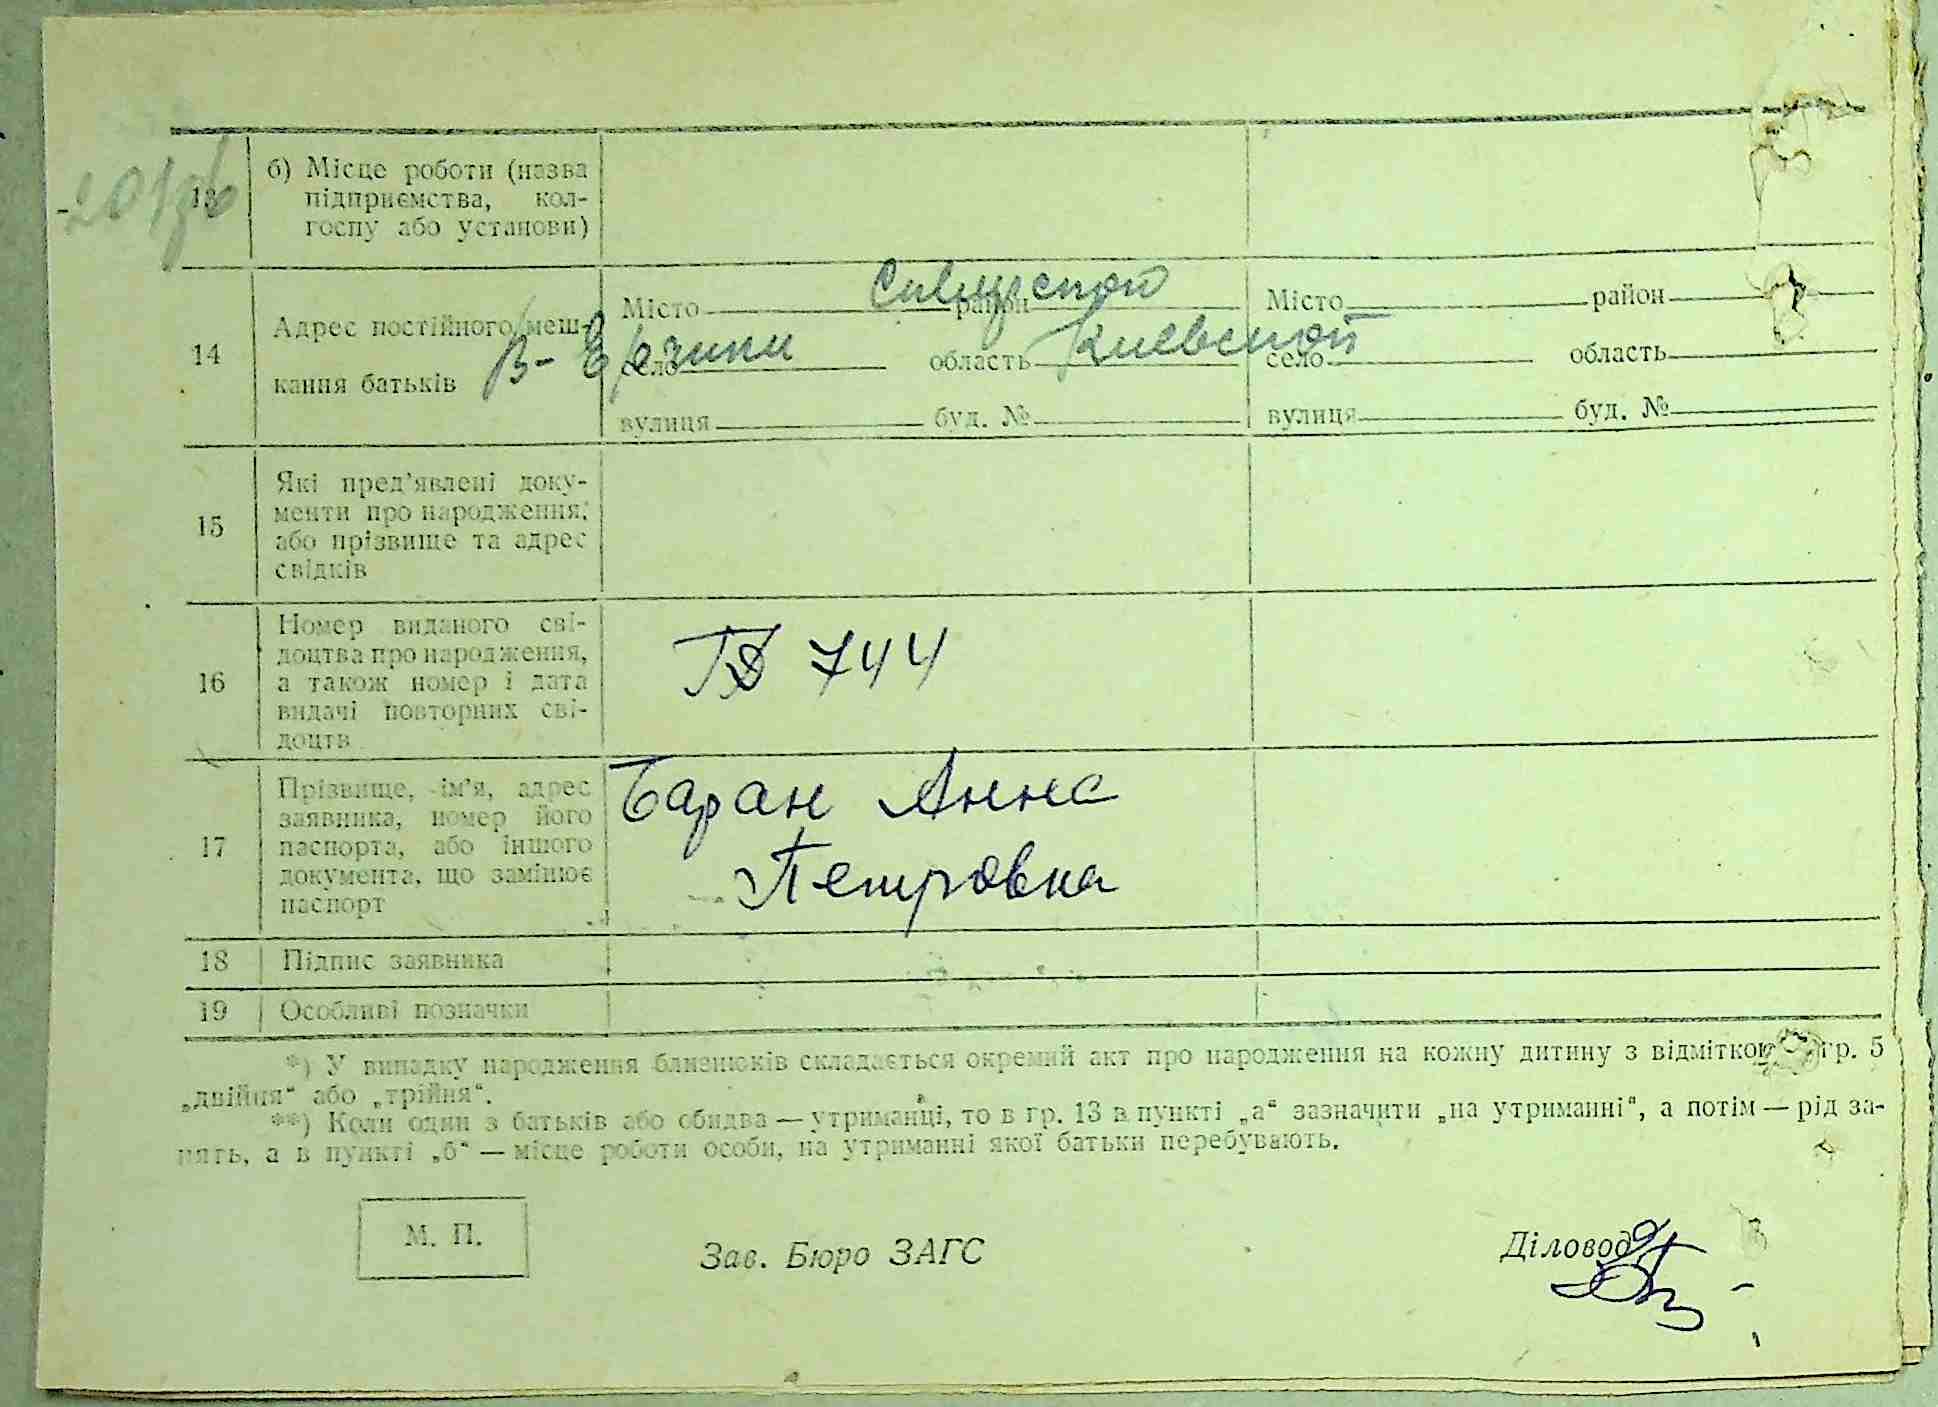 13
б) Місце роботи (назва
підприємства, кол-
госпу або установи)
14
Адрес постійного меш-
кання батьків
Місто район
В- Єрчики
село область Киевской
вулиця буд. №
Місто район
село область
вулиця буд. №
15
Які пред'явлені доку-
менти про народження,
або прізвище та адрес
свідків
16
Номер виданого сві-
доцтва про народження,
а також номер і дата
видачі повторних сві-
доцтв
744
17
Прізвище, ім'я, адрес
заявника, номер його
паспорта, або іншого
документа, що замінює
паспорт
Баран Анна
Петровна
18 Підпис заявника
19 Особливі позначки
*) У випадку народження близнюків складається окремий акт про народження на кожну дитину з відміткою гр. 5
„двійня“ або „трійня“.
**) Коли один з батьків або обидва — утриманці, то в гр. 13 в пункті „а“ зазначити „на утриманні“, а потім — рід за-
нять, а в пункті „б“ — місце роботи особи, на утриманні якої батьки перебувають.
М. П.
Зав. Бюро ЗАГС
Діловод